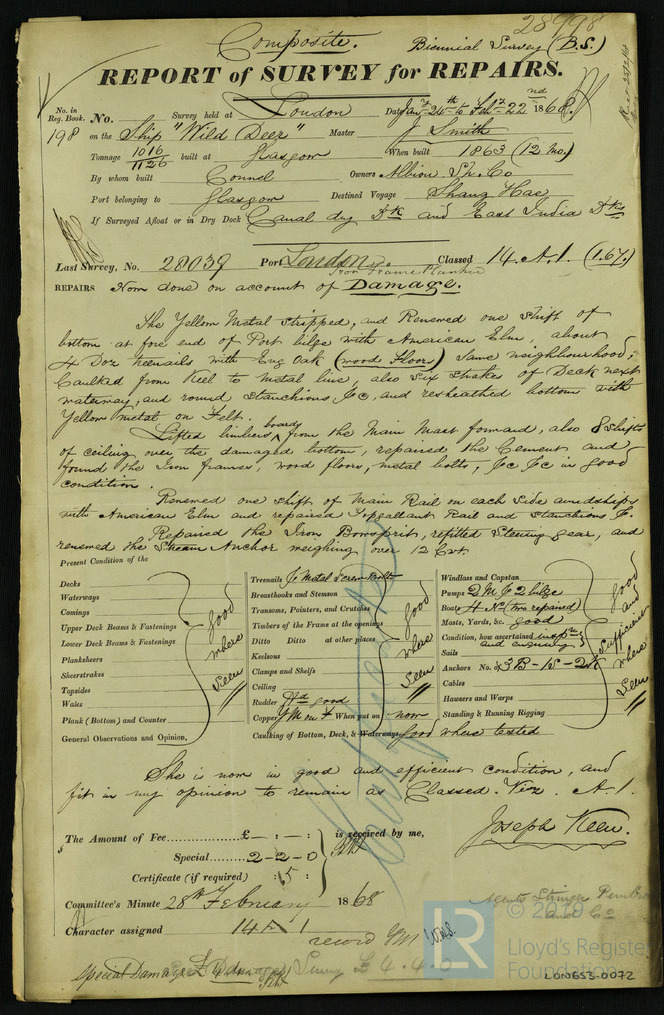 28998
Composite. Biennial Survey (B.S.)
REPORT of SURVEY for REPAIRS.
No. in Reg. Book. No. Survey held at London Date Jany 24th to Feby 22nd 1868
198 on the Ship "Wild Deer" Master J Smith
Tonnage 1016 1126 built at Glasgow When built 1863 (12 Mo.)
By whom built Connel Owners Albion Sh. Co
Port belonging to Glasgow Destined Voyage Shang Hae
If Surveyed Afloat or in Dry Dock Canal dry Dk and East India Dks
Last Survey, No. 28039 Port London Classed 14 A.1. (1.67.)
Iron Frame Planked
REPAIRS Now done on account of Damage.
The Yellow Metal stripped, and Renewed one shift of
bottom at fore end of Port bilge with American Elm, about
4 Doz treenails with Eng Oak (wood Floors) same neighbourhood;
Caulked from Keel to Metal line, also six strakes of Deck next
waterway, and round stanchions &c, and resheathed bottom with
Yellow metal on Felt.
Lifted limbers boards from the Main Mast forward, also 8 shifts
of ceiling over the damaged bottom, repaired the Cement and
found the Iron frames, wood floors, metal bolts, &c &c in good
condition.
Renewed one shift of Main Rail on each side amidships
with American Elm and repaired Topgallant Rail and Stanchions &c.
Repaired the Iron Bowsprit, refitted Steering gear, and
renewed the Stream Anchor weighing over 12 Cwt.
Present Condition of the
Decks
Waterways
Comings
Upper Deck Beams & Fastenings
Lower Deck Beams & Fastenings
Planksheers
Sheerstrakes
Topsides
Wales
Plank (Bottom) and Counter
good where seen
Treenails & Metal Screw Bolts
Breasthooks and Stemson
Transoms, Pointers, and Crutches
Timbers of the Frame at the openings
Ditto Ditto at other places
Keelsons
Clamps and Shelfs
Ceiling
good where seen
Rudder good
Copper Y M on F When put on now
Caulking of Bottom, Deck, & Waterways good where tested
Windlass and Capstan
Pumps 2 M & 2 bilge
Boats 4 No (two repaired)
Masts, Yards, &c. good
Condition, how ascertained
Sails
Anchors No. of 3B-1S-2K
Cables
Hawsers and Warps
Standing & Running Rigging
good and sufficient where seen
General Observations and Opinion,
She is now in good and efficient condition, and
fit in my opinion to remain as Classed. Viz. A.1.
Joseph Keen.
The Amount of Fee £ - : - : is received by me,
Special 2-2-0
Certificate (if required) : 5 :
Committee's Minute 28th February 1868
Character assigned 14 A 1
record YM
Agents Stringer Pembroke
and Co
© 2019
LR
Lloyd's Register
Foundation
Survey £ 4.4.0
LON653-0072